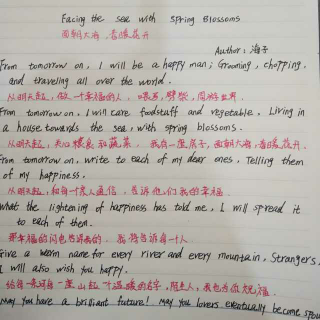 Facing the sea with spring Blossoms
面朝大海,春暖花开
Author: 海子
From tomorrow on, I will be a happy man; Grooming, chopping,
and traveling all over the world.
从明天起,做一个幸福的人,喂马,劈柴,周游世界
From tomorrow on, I will care foodstuff and vegetable, Living in
a house towards the sea, with spring blossoms.
从明天起,关心粮食和蔬菜,我有一座房子,面朝大海,春暖花开
From tomorrow on, write to each of my dear ones, Telling them
of my happiness.
从明天起,和每一个亲人通信,告诉他们我的幸福
What the lightening of happiness has told me, I will spread it
to each of them.
那幸福的闪电告诉我的,我将告诉每一个人
Give a warm name for every river and every mountain, Strangers,
I will also wish you happy.
给每一条河每一座山取一个温暖的名字,陌生人,我也为你祝福
May you have a brilliant future! May you lovers eventually become spou